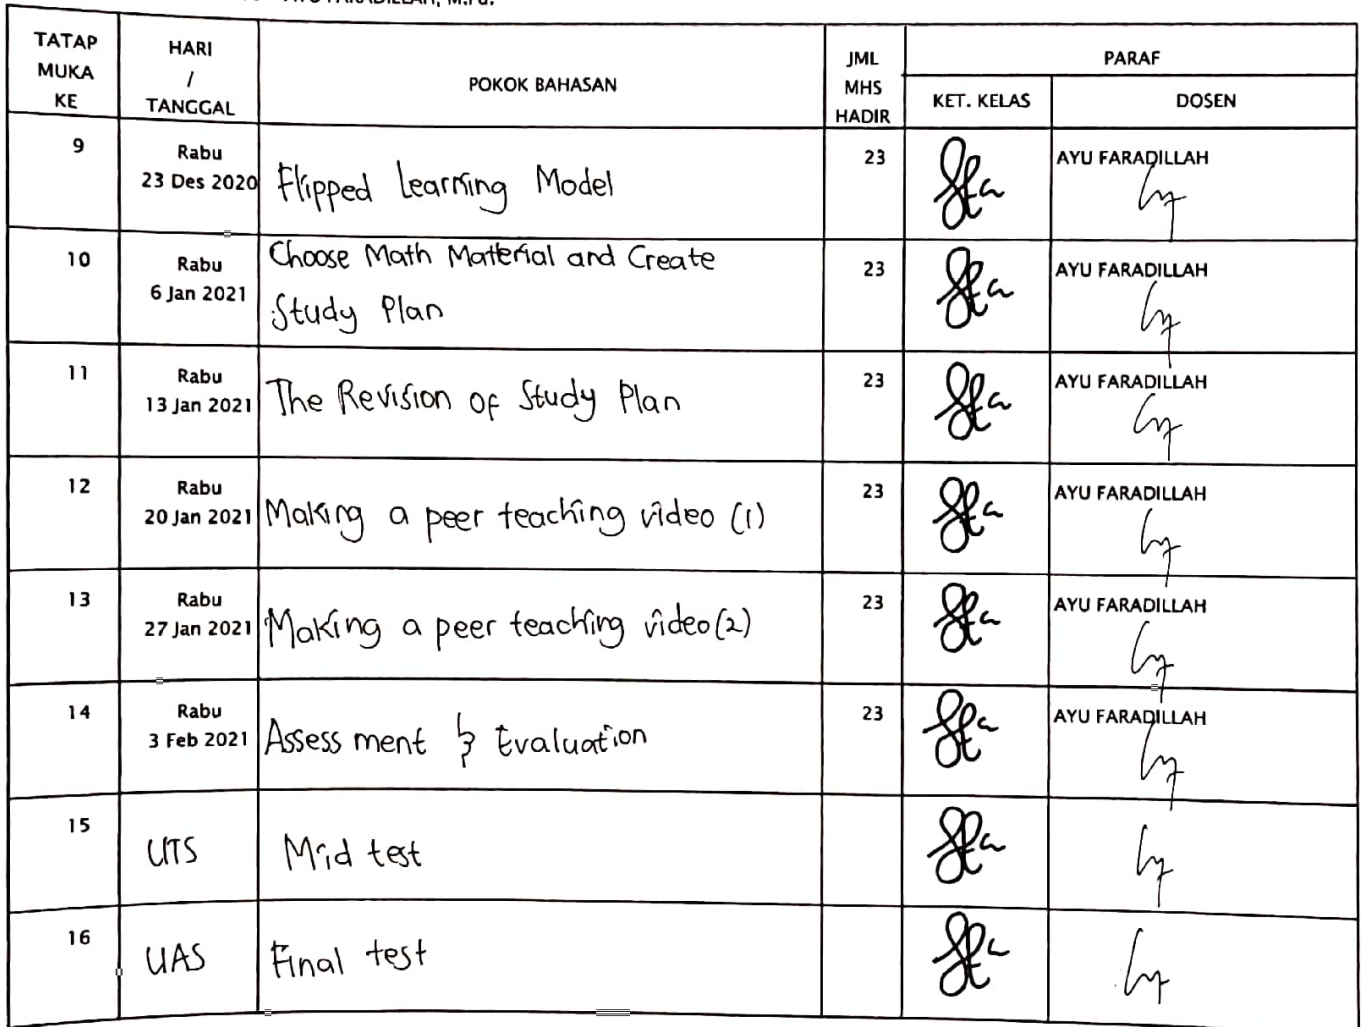 AYU FARADILLAH, M.Pd.
TATAP MUKA KE
HARI / TANGGAL
POKOK BAHASAN
JML MHS HADIR
PARAF
KET. KELAS
DOSEN
9
Rabu
23 Des 2020
Flipped Learning Model
23
AYU FARADILLAH
10
Rabu
6 Jan 2021
Choose Math Material and Create
Study Plan
23
AYU FARADILLAH
11
Rabu
13 Jan 2021
The Revision of Study Plan
23
AYU FARADILLAH
12
Rabu
20 Jan 2021
Making a peer teaching video (1)
23
AYU FARADILLAH
13
Rabu
27 Jan 2021
Making a peer teaching video (2)
23
AYU FARADILLAH
14
Rabu
3 Feb 2021
Assessment & Evaluation
23
AYU FARADILLAH
15
UTS
Mid test
16
UAS
Final test